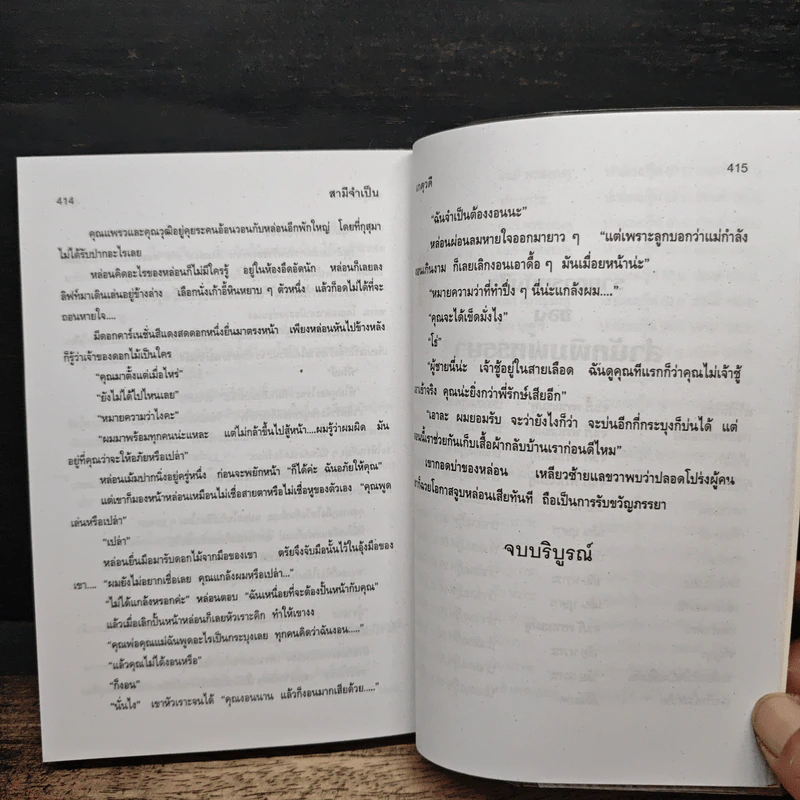 414
สามีจำเป็น
คุณแพรวและคุณวุฒิอยู่คุยระคนอ้อนวอนกับหล่อนอีกพักใหญ่ โดยที่กุสุมา
ไม่ได้รับปากอะไรเลย
หล่อนคิดอะไรของหล่อนก็ไม่มีใครรู้ อยู่ในห้องอึดอัดนัก หล่อนก็เลยลง
ลิฟท์มาเดินเล่นอยู่ข้างล่าง เลือกนั่งเก้าอี้หินหยาบ ๆ ตัวหนึ่ง แล้วก็อดไม่ได้ที่จะ
ถอนหายใจ....
มีดอกคาร์เนชั่นสีแดงสดดอกหนึ่งยื่นมาตรงหน้า เพียงหล่อนหันไปข้างหลัง
ก็รู้ว่าเจ้าของดอกไม้เป็นใคร
“คุณมาตั้งแต่เมื่อไหร่”
“ยังไม่ได้ไปไหนเลย”
“หมายความว่าไงคะ”
“ผมมาพร้อมทุกคนน่ะแหละ แต่ไม่กล้าขึ้นไปสู้หน้า....ผมรู้ว่าผมผิด มัน
อยู่ที่คุณว่าจะให้อภัยหรือเปล่า”
หล่อนเม้มปากนิ่งอยู่ครู่หนึ่ง ก่อนจะพยักหน้า “ก็ได้ค่ะ ฉันอภัยให้คุณ”
แต่เขาก็มองหน้าหล่อนเหมือนไม่เชื่อสายตาหรือไม่เชื่อหูของตัวเอง “คุณพูด
เล่นหรือเปล่า”
“เปล่า”
หล่อนยื่นมือมารับดอกไม้จากมือของเขา ตรัยจึงจับมือนั้นไว้ในอุ้งมือของ
เขา.... “ผมยังไม่อยากเชื่อเลย คุณแกล้งผมหรือเปล่า...”
“ไม่ได้แกล้งหรอกค่ะ” หล่อนตอบ “ฉันเหนื่อยที่จะต้องปั้นหน้ากับคุณ”
แล้วเมื่อเลิกปั้นหน้าหล่อนก็เลยหัวเราะคิก ทำให้เขางง
“คุณพ่อคุณแม่ฉันพูดอะไรเป็นกระบุงเลย ทุกคนคิดว่าฉันงอน.....”
“แล้วคุณไม่ได้งอนหรือ”
“ก็งอน”
“นั่นไง” เขาหัวเราะจนได้ “คุณงอนนาน แล้วก็งอนมากเสียด้วย.....”
415
“ฉันจำเป็นต้องงอนนะ”
หล่อนผ่อนลมหายใจออกมายาว ๆ “แต่เพราะลูกบอกว่าแม่กำลัง
งอนเกินงาม ก็เลยเลิกงอนเอาดื้อ ๆ มันเมื่อยหน้าน่ะ”
“หมายความว่าที่ทำปึ่ง ๆ นี่น่ะแกล้งผม....”
“คุณจะได้เข็ดมั่งไง”
“โธ่”
“ผู้ชายนี่น่ะ เจ้าชู้อยู่ในสายเลือด ฉันดูคุณทีแรกก็ว่าคุณไม่เจ้าชู้
จริง คุณน่ะยิ่งกว่าพี่รักษ์เสียอีก”
“เอาละ ผมยอมรับ จะว่ายังไงก็ว่า จะบ่นอีกกี่กระบุงก็บ่นได้ แต่
เราช่วยกันเก็บเสื้อผ้ากลับบ้านเราก่อนดีไหม”
เขากอดบ่าของหล่อน เหลียวซ้ายแลขวาพบว่าปลอดโปร่งผู้คน
ก็ฉวยโอกาสจูบหล่อนเสียทันที ถือเป็นการรับขวัญภรรยา
จบบริบูรณ์